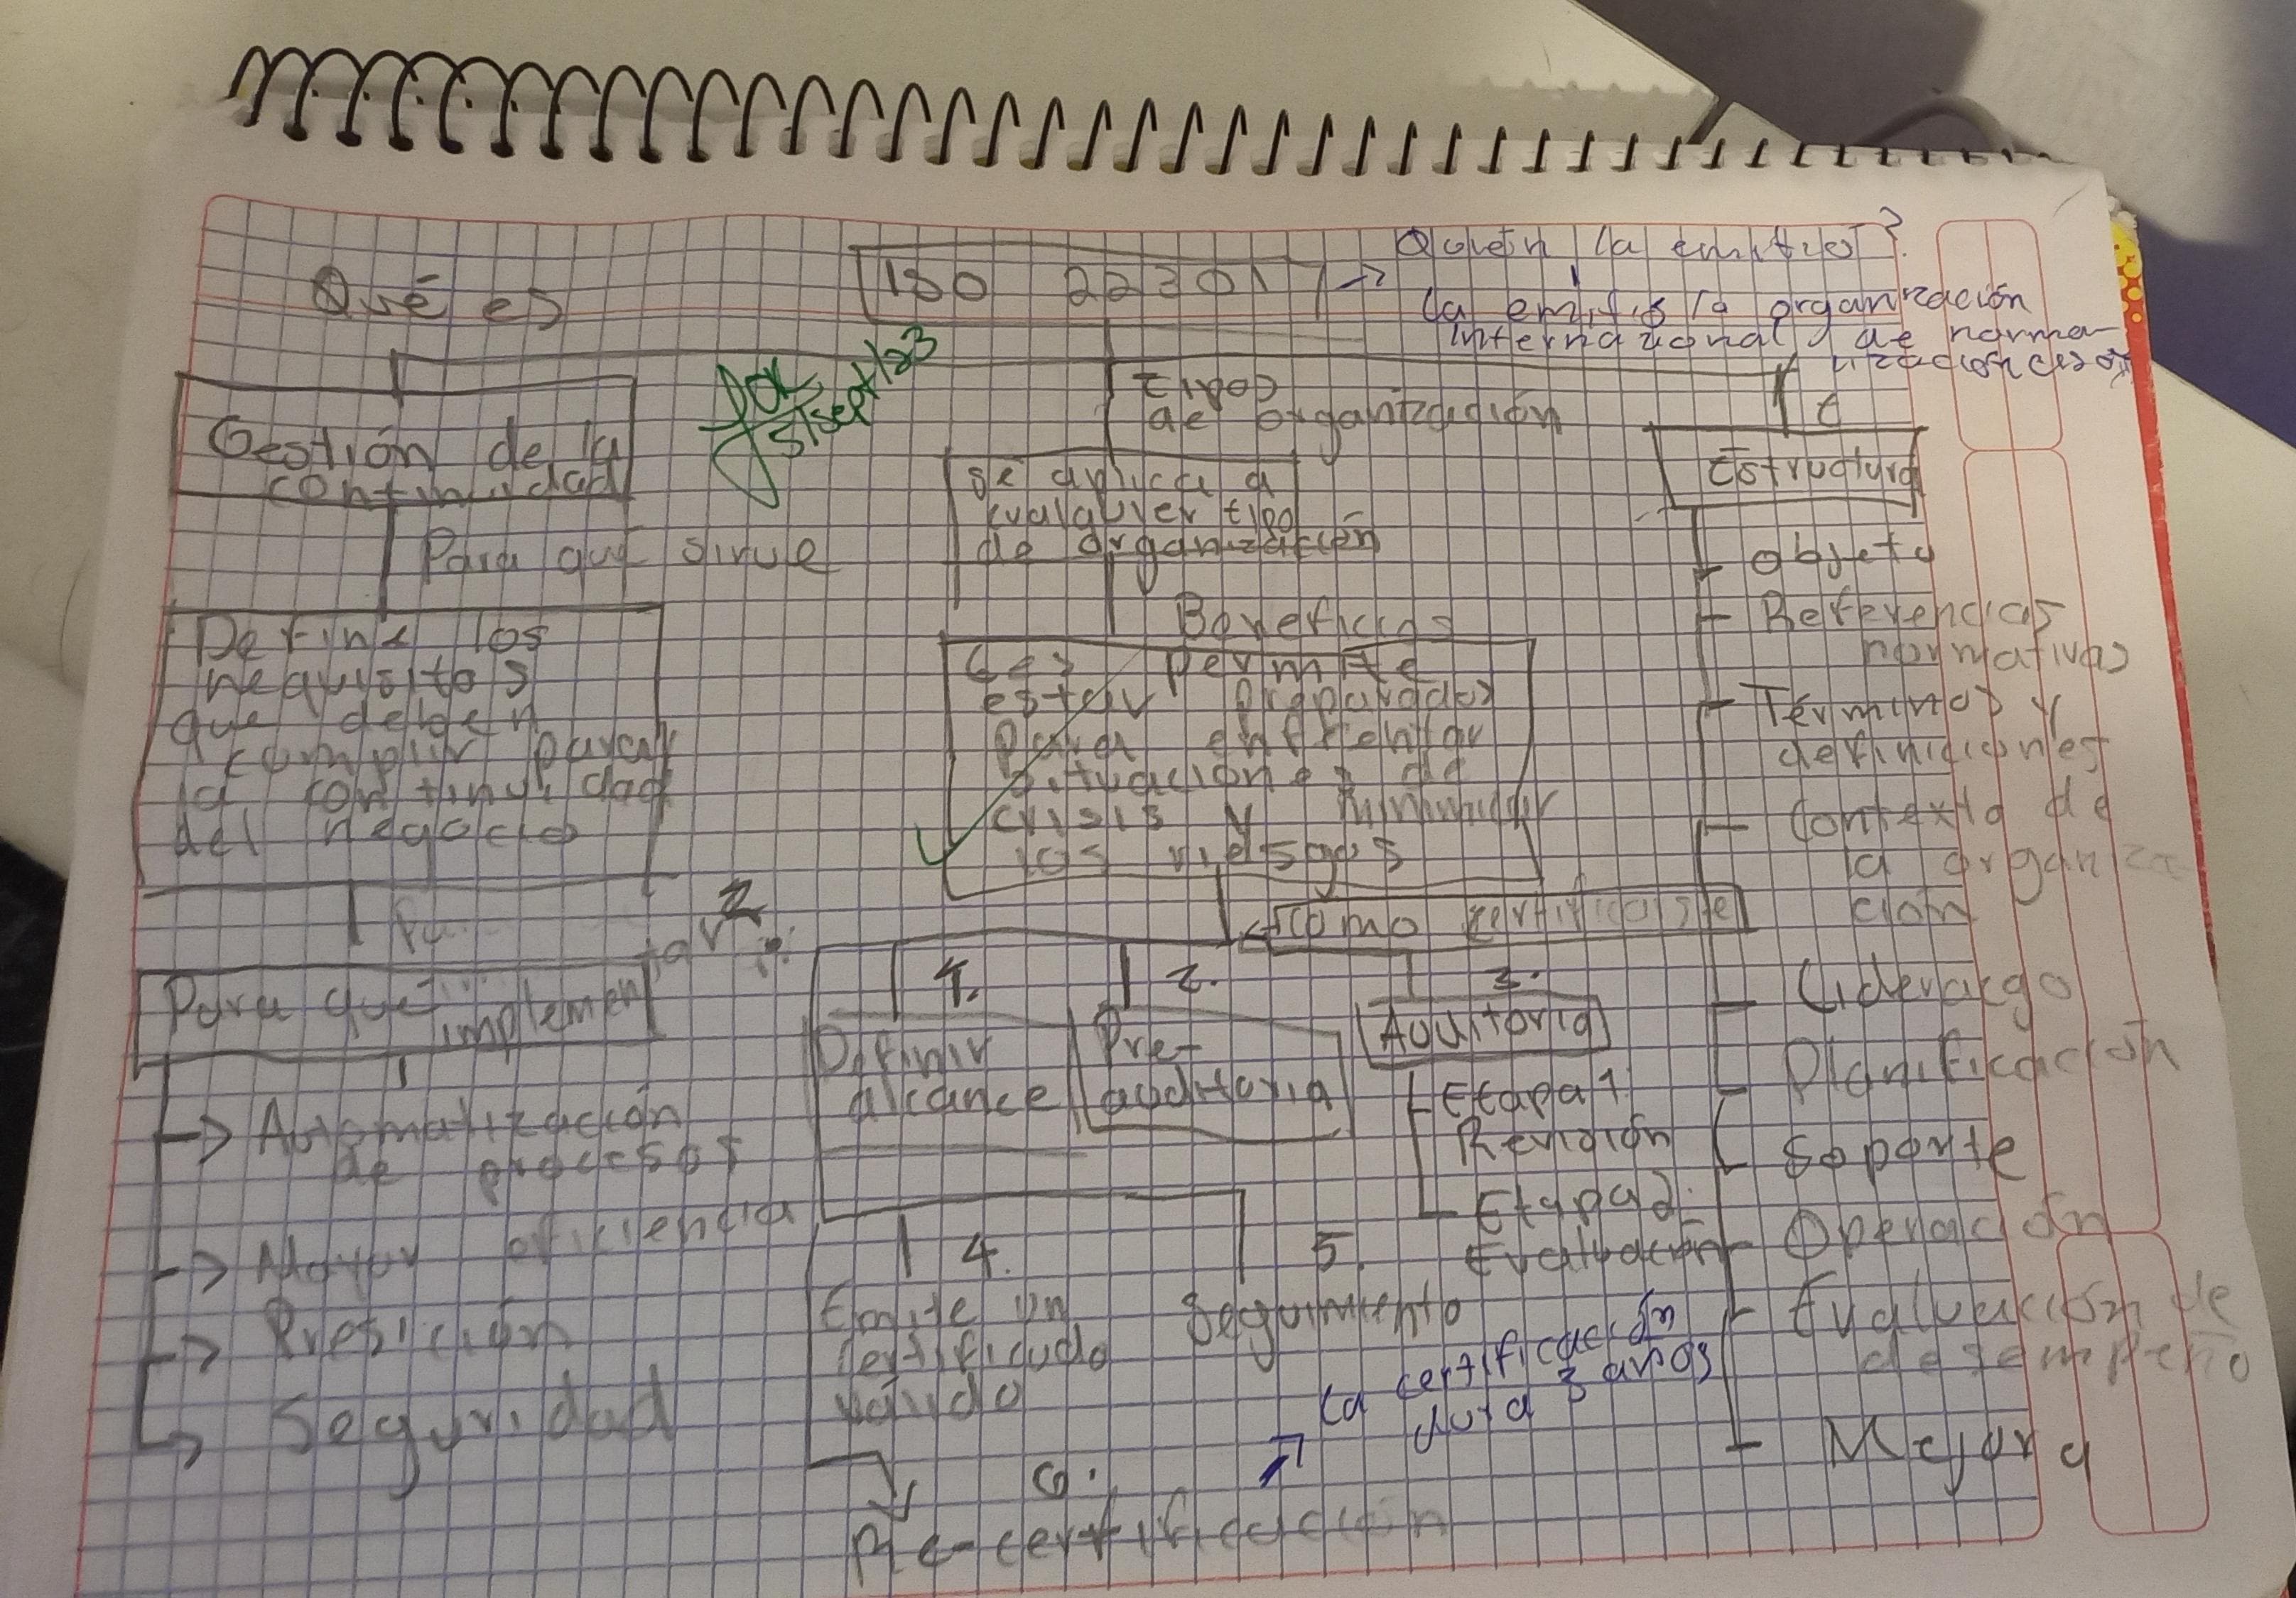 Qué es
ISO 22301
Quién la emitió?
la emitió la organización
internacional de norma-
lización (ISO)
5/sept/23
Gestión de la
continuidad
Para qué sirve
Define los
requisitos
que deben
cumplir para
la continuidad
del negocio
Para qué implementar
Automatización
de procesos
Mayor eficiencia
Presición
Seguridad
tipos
de organización
se aplica a
cualquier tipo
de organización
Beneficios
Les permite
estar preparados
para enfrentar
situaciones de
crisis y minimizar
los riesgos
como certificarse
1.
Definir
alcance
2.
Pre-
auditoria
3.
Auditoria
Etapa 1:
Revisión
Etapa 2:
Evaluación
4.
Emite un
certificado
válido
5.
Seguimiento
la certificación
dura 3 años
6.
Re-certificación
Estructura
objeto
Referencias
normativas
Términos y
definiciones
Contexto de
la organiza
ción
Liderazgo
Planificación
Soporte
Operación
Evaluación de
desempeño
Mejora